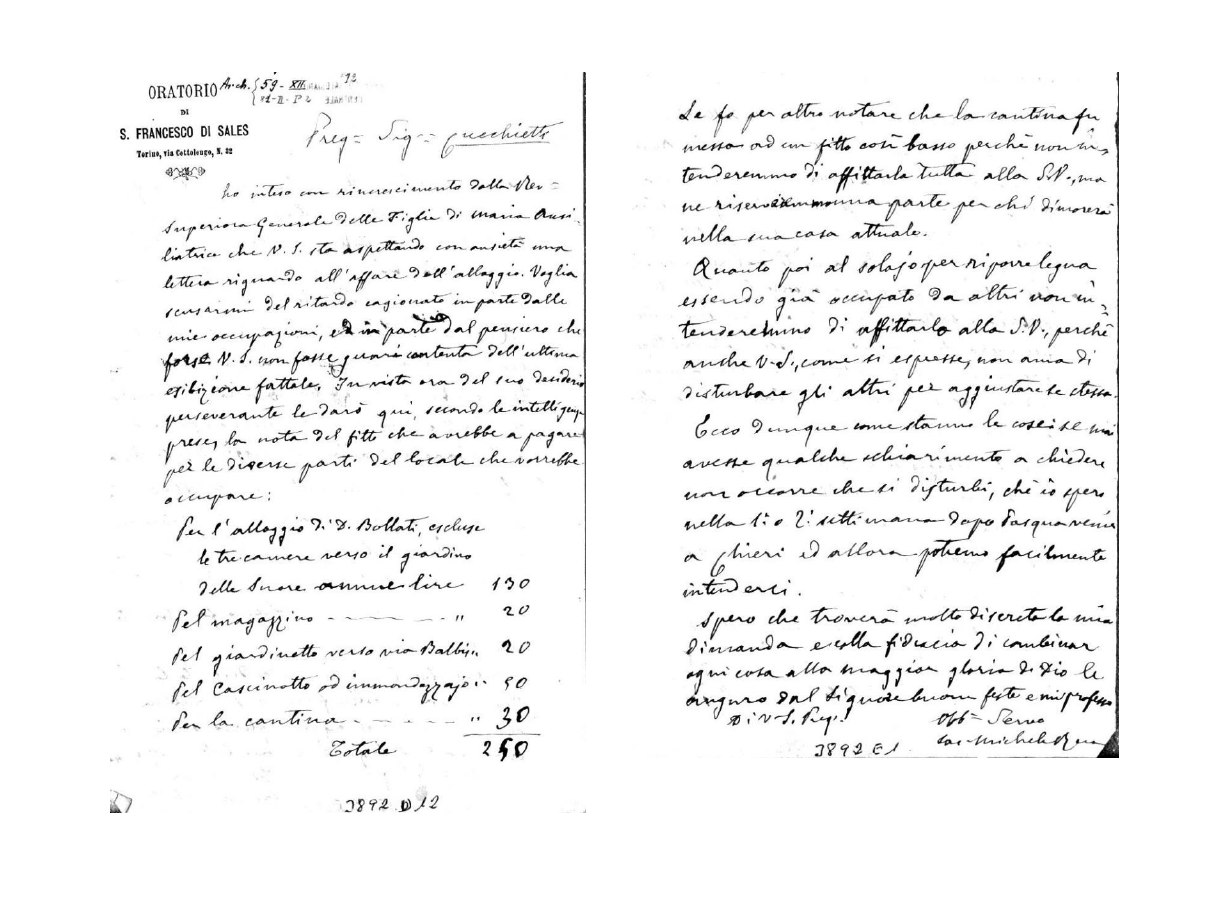 ORATORIO
DI
S. FRANCESCO DI SALES
Torino, via Cottolengo, N. 32
Arch. 59 - XII
Preg= Sig= Cucchietti
ho inteso con rincrescimento dalla Rev=
Superiora Generale delle Figlie di Maria Ausi-
liatrice che V. S. sta aspettando con ansietà una
lettera riguardo all'affare dell'alloggio. Voglia
scusarmi del ritardo cagionato in parte dalle
mie occupazioni, ed in parte dal pensiero che
forse V. S. non fosse guari contenta dell'ultima
esibizione fattale. In vista ora del suo desiderio
perseverante le darò qui, secondo le intelligenze
prese, la nota del fitto che avrebbe a pagare
per le diverse parti del locale che vorrebbe
occupare:
Per l'alloggio di D. Bollati, escluse
le tre camere verso il giardino
delle Suore annue lire 130
Pel magazzino - — - — - " 20
Pel giardinetto verso via Balbi " 20
Pel Cascinotto od immondezzajo " 50
Per la cantina - — - — - " 30
Totale 250
3892 D 12
Le fo per altro notare che la cantina fu
messa ad un fitto così basso perchè non in-
tenderemmo di affittarla tutta alla S.V., ma
ne riserveremmo una parte per chi dimorerà
nella sua casa attuale.
Quanto poi al solajo per riporre legna
essendo già occupato da altri non in-
tenderemmo di affittarlo alla S.V., perchè
anche V.S., come si espresse, non ama di
disturbare gli altri per aggiustare se stessa.
Ecco dunque come stanno le cose: se mai
avesse qualche schiarimento a chiedere
non occorre che si disturbi, chè io spero
nella 1ª o 2ª settimana dopo Pasqua venir
a Chieri ed allora potremo facilmente
intenderci.
Spero che troverà molto discreta la mia
dimanda e colla fiducia di combinar
ogni cosa alla maggior gloria di Dio le
auguro dal Signore buone feste e mi professo
Di V. S. Preg.
Obb= Servo
Sac. Michele Rua
3892 E 1